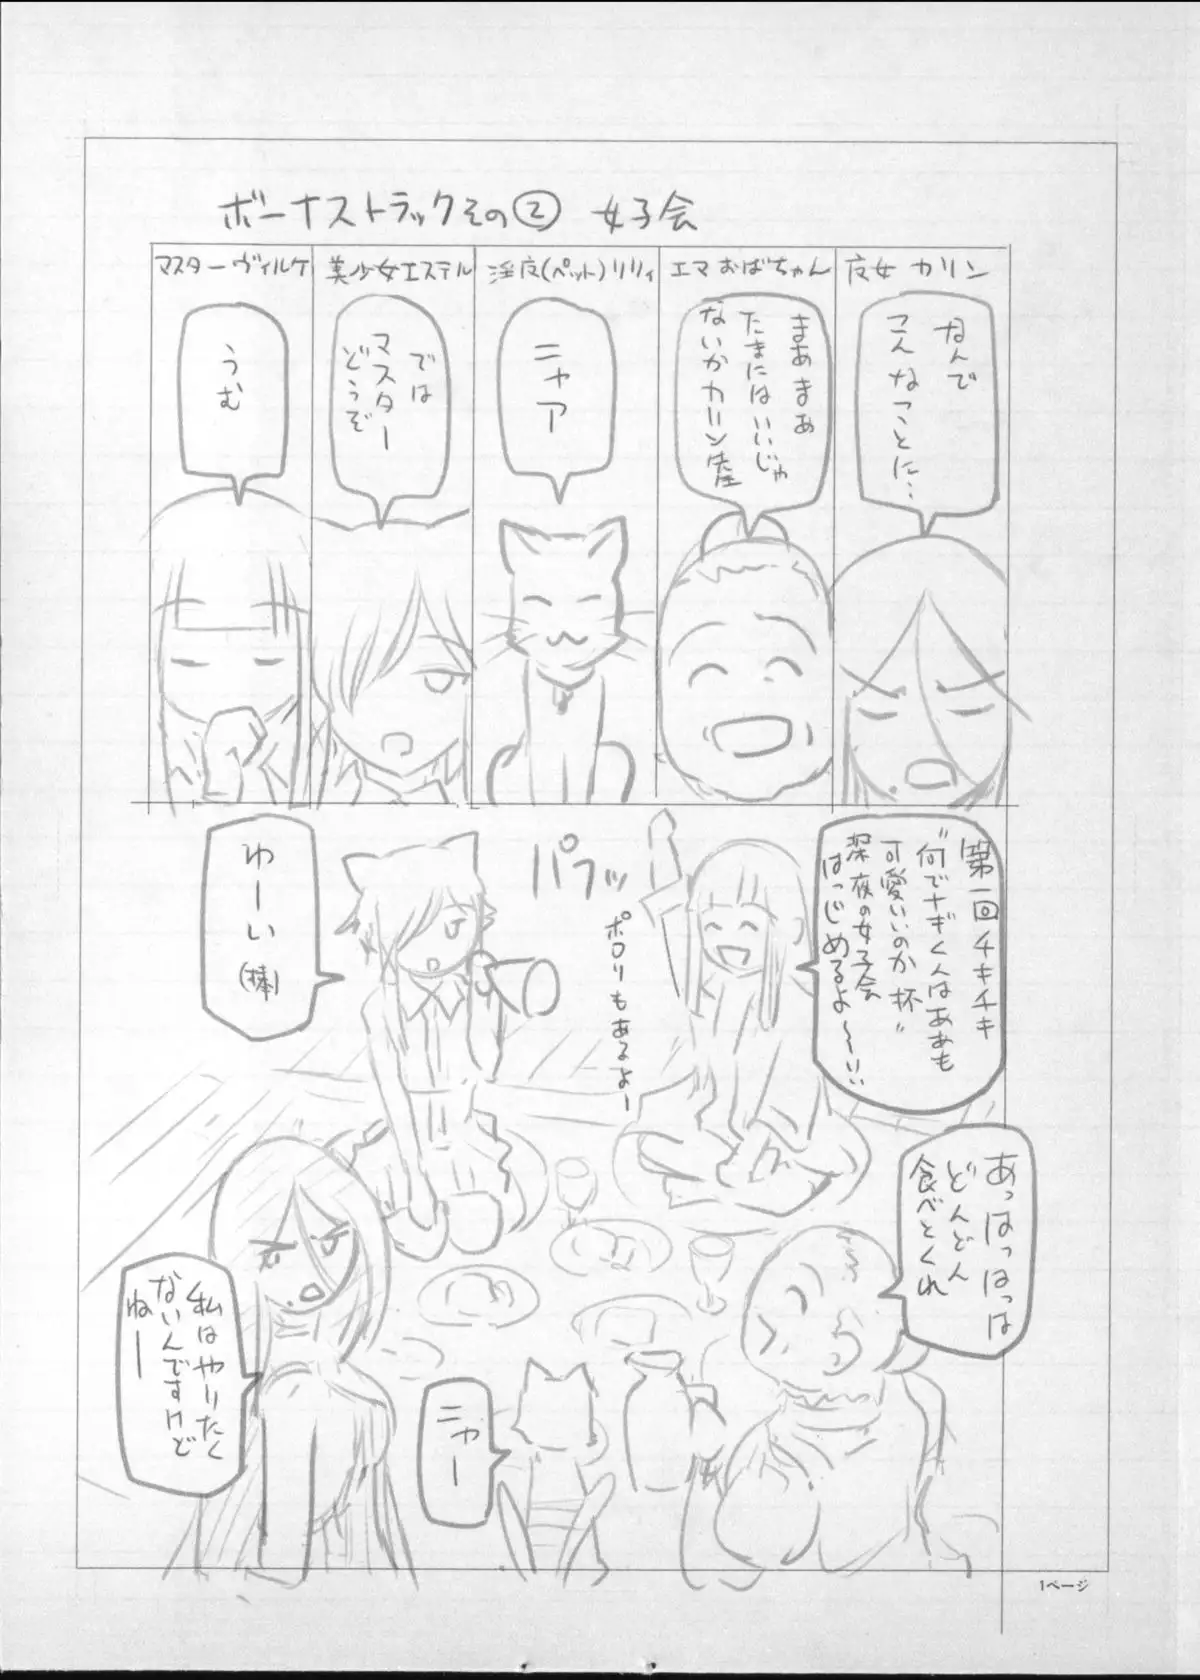 ボーナストラックその② 女子会
女 カリン
なんで
こんなことに…
エマおばちゃん
まあまあ
たまにはいいじゃ
ないかカリン
(ペット)リリィ
ニャア
美少女エステル
では
マスター
どうぞ
マスターヴィルケ
うむ
第一回チキチキ
“何でナギくんはああも
可愛いのか杯”
深夜の女子会
はっじめるよ～～!!
パフッ
ポロリもあるよー
わーい(棒)
あっはっはっは
どんどん
食べとくれ
ニャー
私はやりたく
ないんですけど
ねー
1ページ